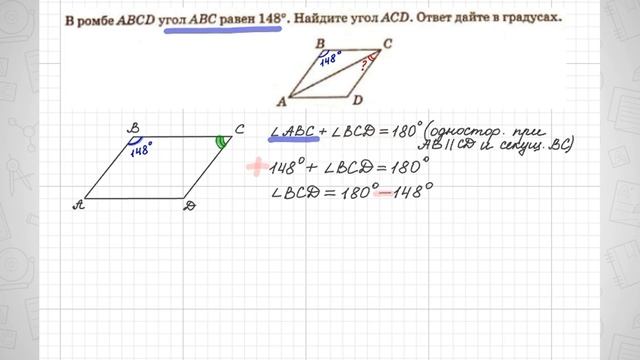 В ромбе ABCD угол ABC равен 148°. Найдите угол ACD. Ответ дайте в градусах.
B C
148° ?
A D
B C
148°
A D
∠ABC + ∠BCD = 180° (одностор. при
AB || CD и секущ. BC)
+ 148° + ∠BCD = 180°
∠BCD = 180° − 148°